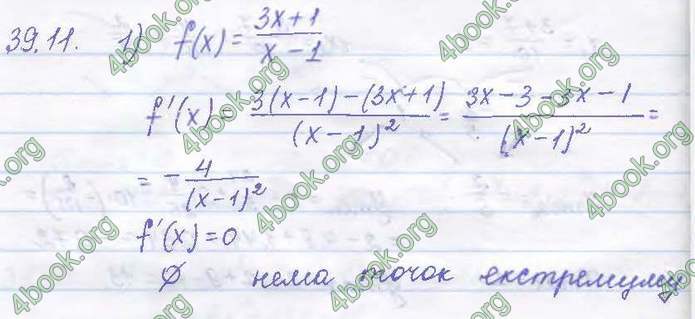 39.11. 1) f(x) = (3x+1)/(x-1)
f'(x) = (3(x-1)-(3x+1))/(x-1)² = (3x-3-3x-1)/(x-1)² =
= -4/(x-1)²
f'(x)=0
∅ нема точок екстремуму
4book.org
4book.org
4book.org
4book.org
4book.org
4book.org
4book.org
4book.org
4book.org